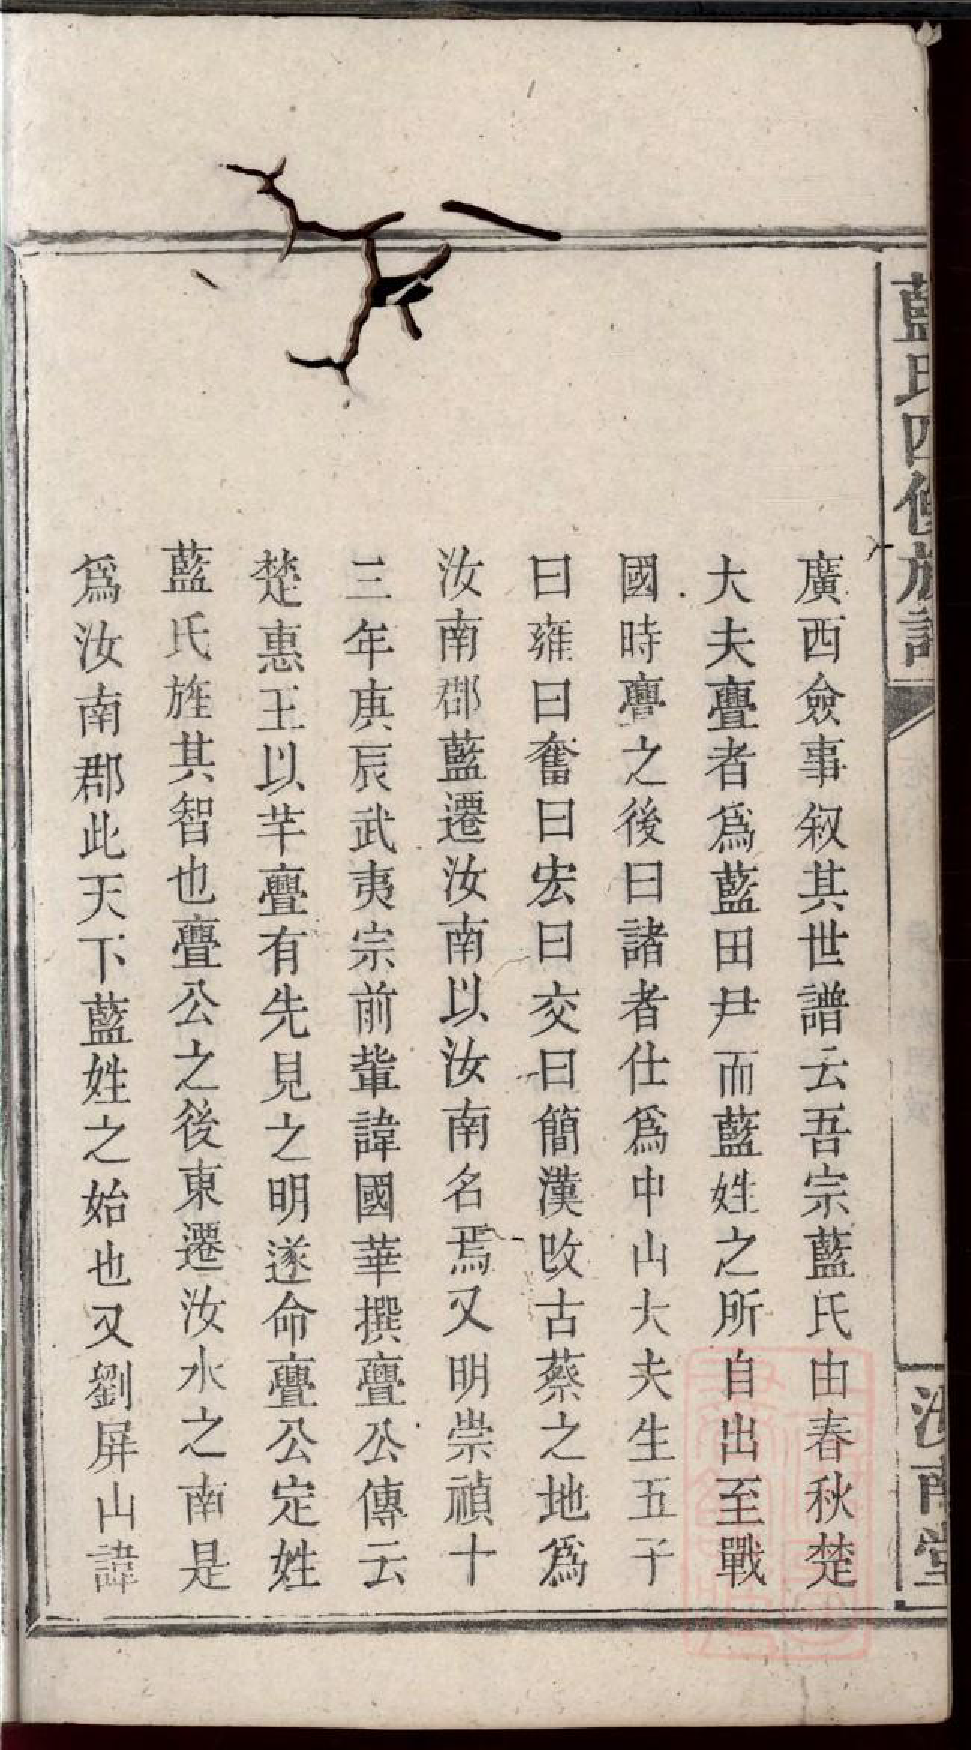 藍氏四修族譜
汝南堂
廣西僉事叙其世譜云吾宗藍氏由春秋楚
大夫亹者爲藍田尹而藍姓之所自出至戰
國時亹之後曰諸者仕爲中山大夫生五子
曰雍曰奮曰宏曰交曰簡漢改古蔡之地爲
汝南郡藍遷汝南以汝南名焉又明崇禎十
三年庚辰武夷宗前輩諱國華撰亹公傳云
楚惠王以芊亹有先見之明遂命亹公定姓
藍氏旌其智也亹公之後東遷汝水之南是
爲汝南郡此天下藍姓之始也又劉屏山諱